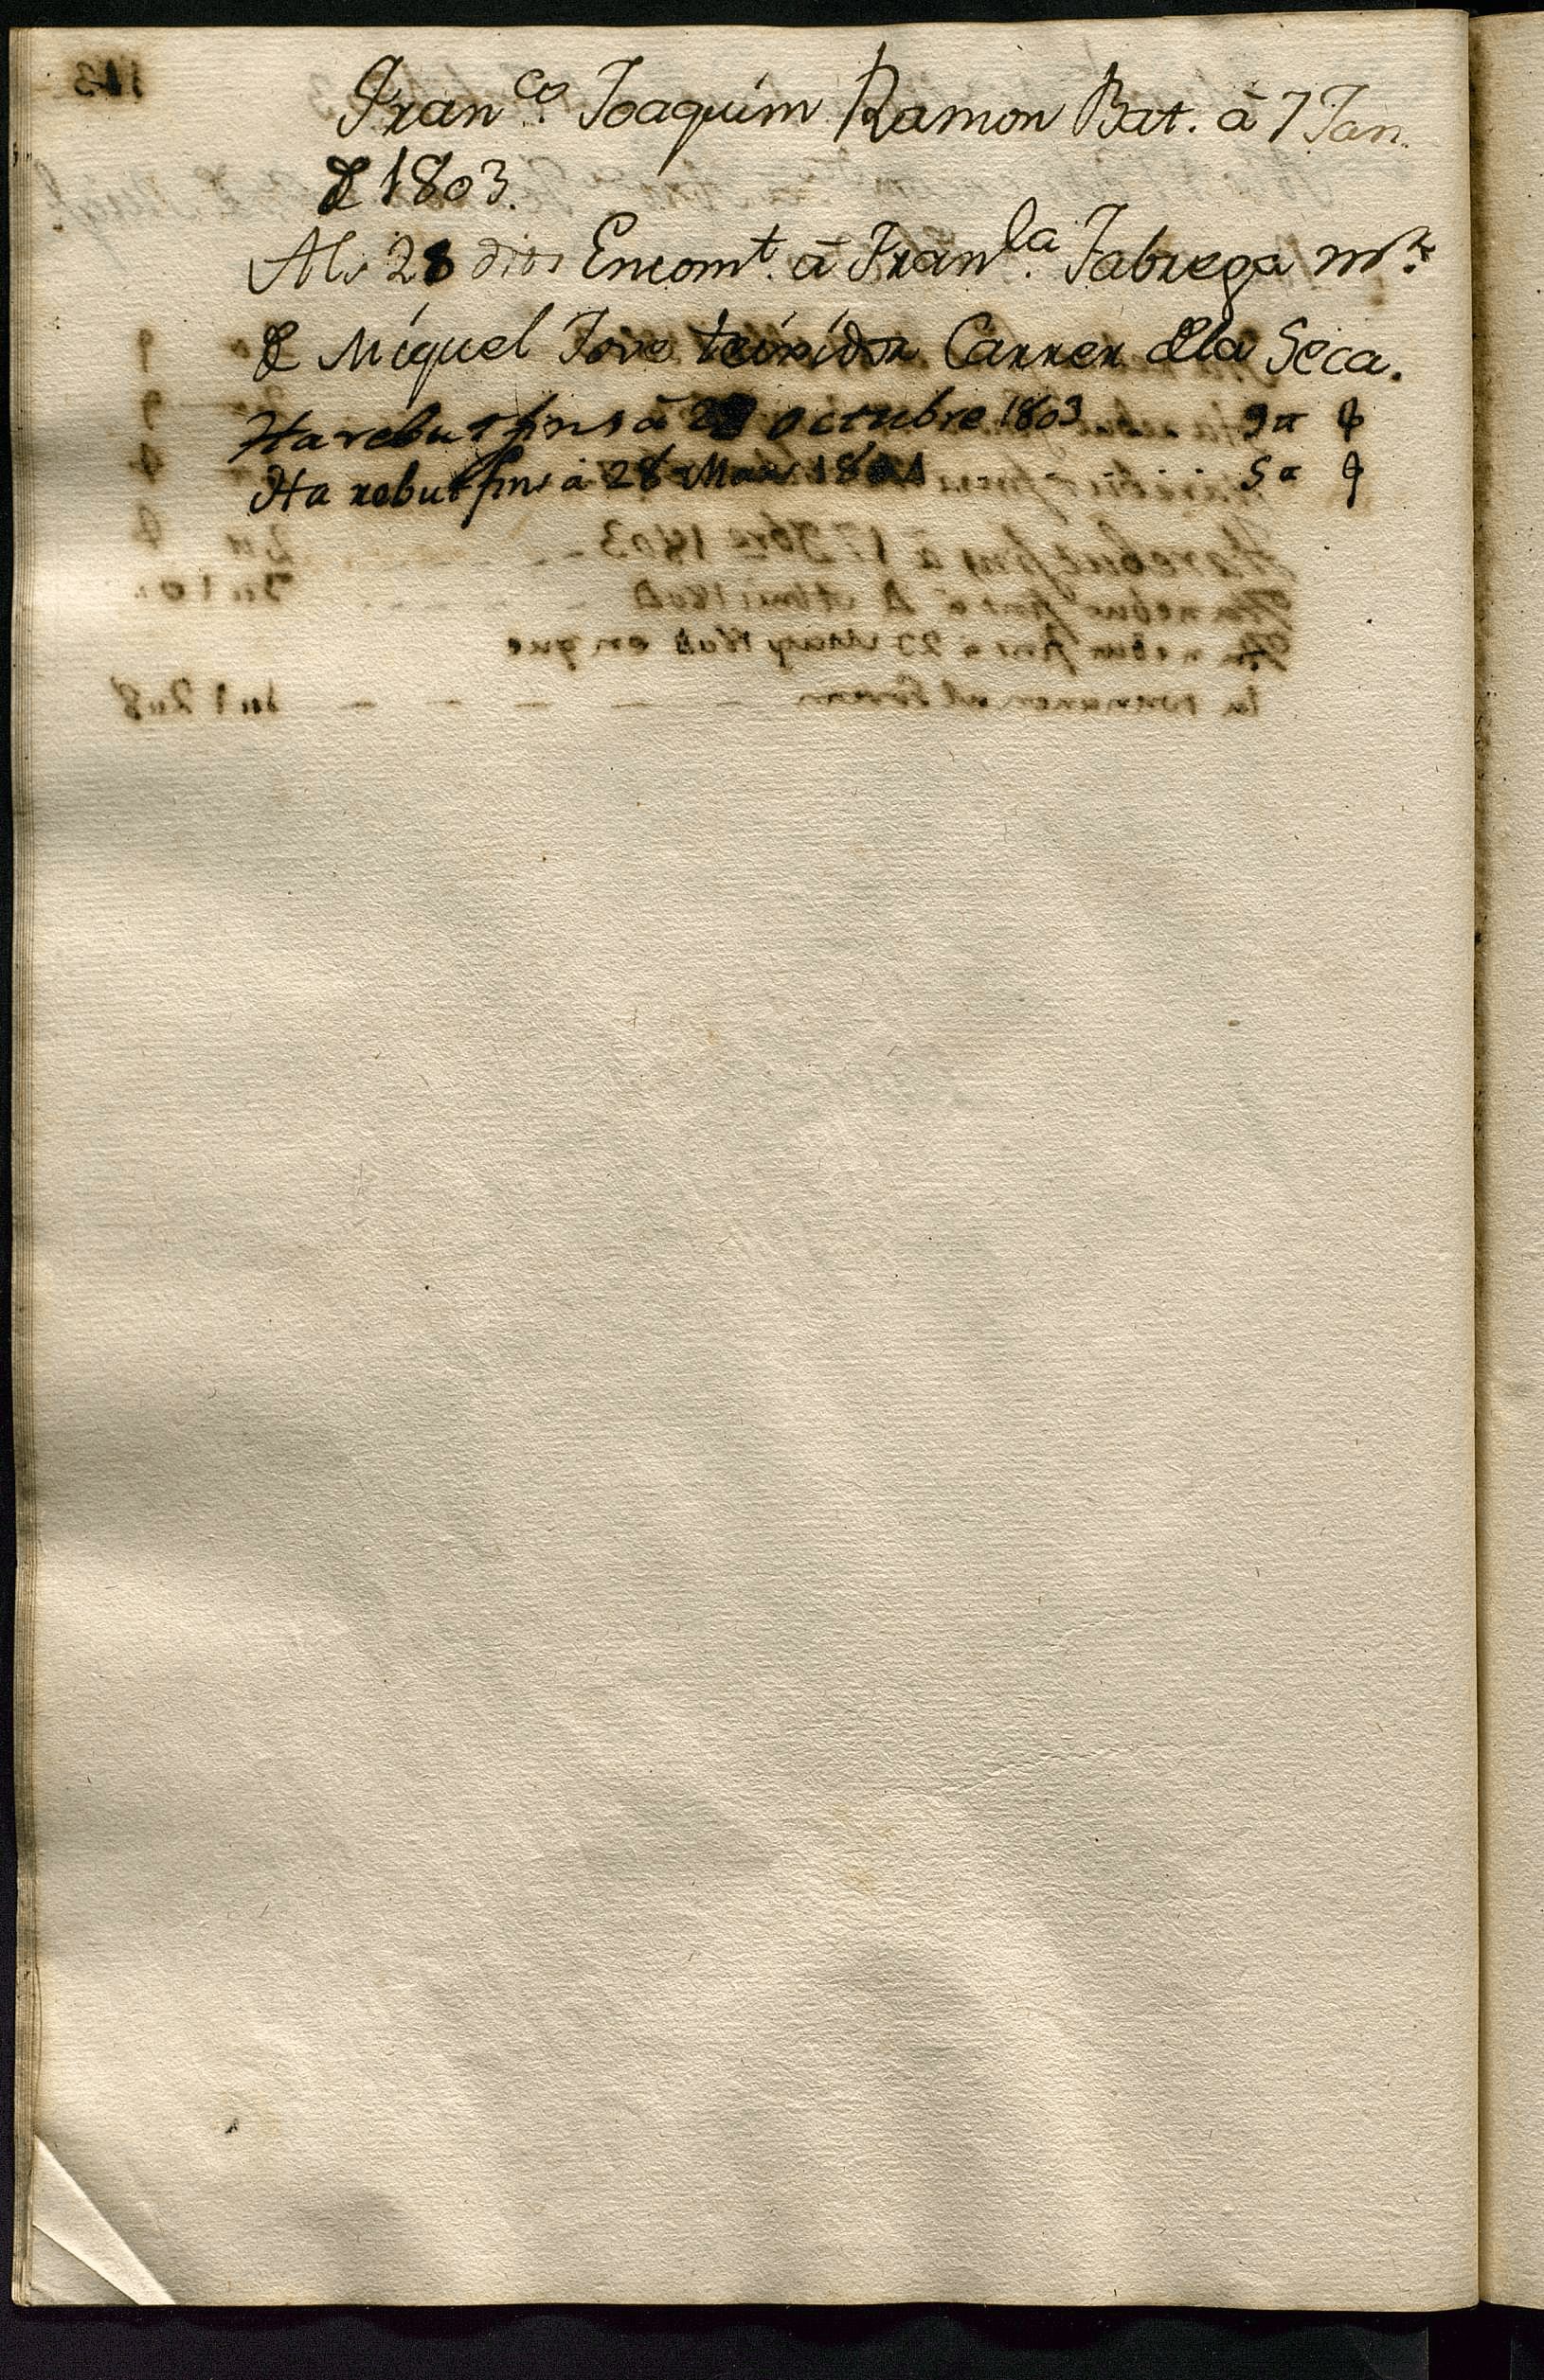 Franco. Joaquim Ramon Bat. à 7 Jan.
de 1803.
Als 28 dits Encomt. à Franla. Fabrega mr.
de Miquel Jove teixidor Carrer dela Seca.
Ha rebut fins à 28 octubre 1803 9 ₶ ꝑ
Ha rebut fins à 28 Mars 1804 5 ₶ ꝑ